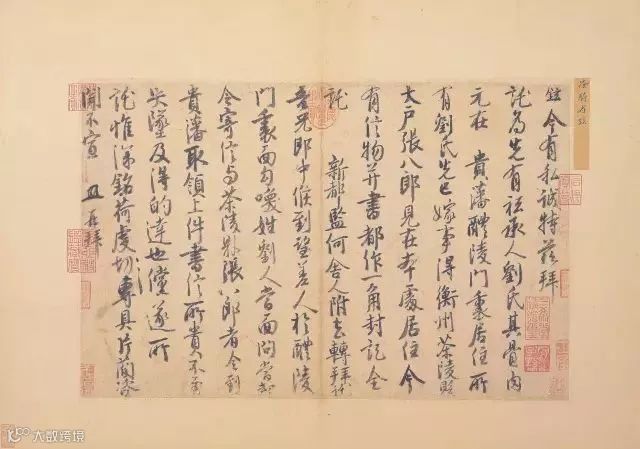 鉉今有私誠特茲拜
託為先有祗承人劉氏其骨肉
元在 貴藩醴陵門裏居住所
有劉氏先已嫁事得衡州茶陵縣
大戶張八郎見在本處居住今
有信物并書都作一角封記全
託 新都監何舍人附去轉拜託
吾兄郎中候到望差人於醴陵
門裏面勾喚姓劉人當面問當却
令寄信與茶陵縣張八郎者令到
貴藩取領上件書信所貴不至
失墜及得的達也儻遂所
託惟深銘荷虔切專具片簡咨
聞不宣 再拜
大数跨境